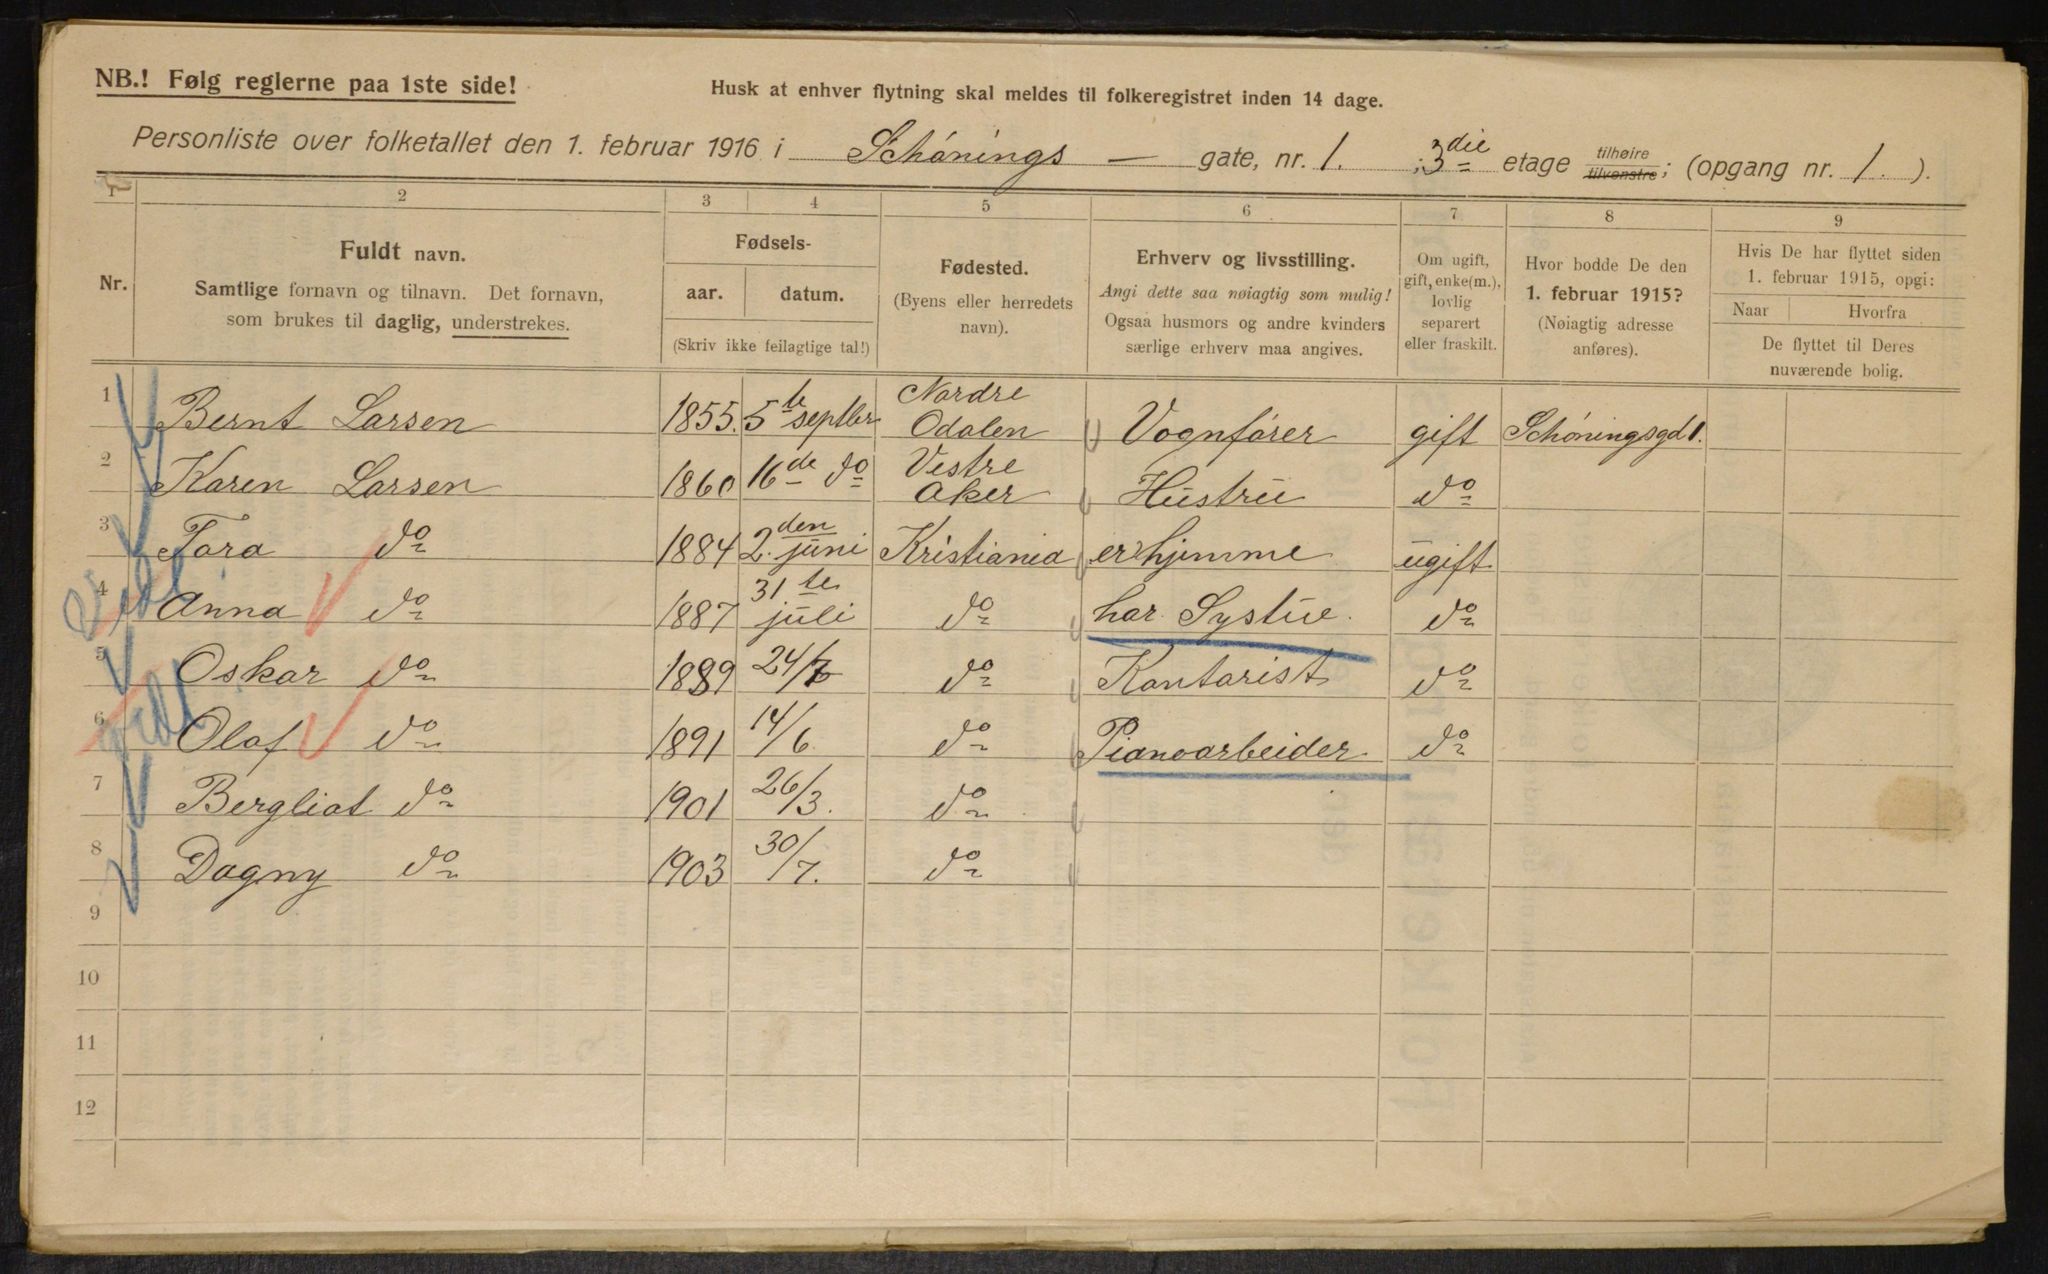 NB.! Følg reglerne paa 1ste side!
Husk at enhver flytning skal meldes til folkeregistret inden 14 dage.
Personliste over folketallet den 1. februar 1916 i Schónings — gate, nr. 1. ; 3die etage tilhøire tilvenstre; (opgang nr. 1. ).
1 2 3 4 5 6 7 8 9
Nr.
Fuldt navn.
Samtlige fornavn og tilnavn. Det fornavn,
som brukes til daglig, understrekes.
Fødsels-
aar. datum.
(Skriv ikke feilagtige tal!)
Fødested.
(Byens eller herredets
navn).
Erhverv og livsstilling.
Angi dette saa nøiagtig som mulig!
Ogsaa husmors og andre kvinders
særlige erhverv maa angives.
Om ugift,
gift, enke(m.),
lovlig
separert
eller fraskilt.
Hvor bodde De den
1. februar 1915?
(Nøiagtig adresse
anføres).
Hvis De har flyttet siden
1. februar 1915, opgi:
Naar Hvorfra
De flyttet til Deres
nuværende bolig.
1 Bernt Larsen 1855. 5te septbr Nordre Odalen Vognfører gift Schóningsgd 1.
2 Karen Larsen 1860 16de do Vestre Aker Hustru do
3 Tora do 1884 2den juni Kristiania er hjemme ugift
4 Anna do 1887 31.te juli do har Systue. do
5 Oskar do 1889 24/ do Kontorist do
6 Olaf do 1891 14/6. do Pianoarbeider do
7 Bergliot do 1901 26/3. do
8 Dagny do 1903 30/7. do
9
10
11
12